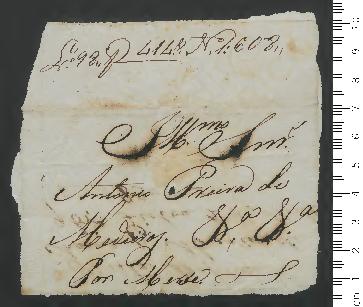 Lº 98, P 4148. N. 1:608,,
Illmo Snr.
Antonio Pereira de
Medeiros. &ª &ª
Por Mercê